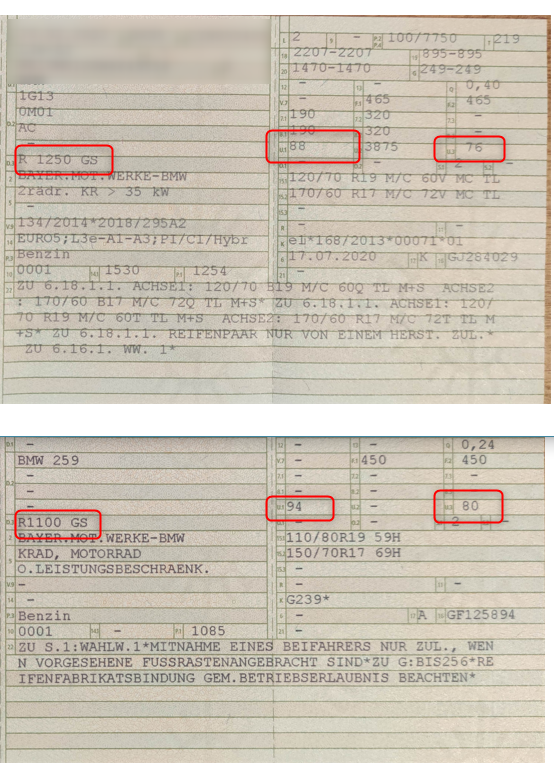 2 - 100/7750 219
2207-2207 895-895
1470-1470 249-249
- - 0,40
1G13 - 465 465
0M01 190 320 -
AC 190 320 -
- 88 3875 76
R 1250 GS - - 2 -
BAYER.MOT.WERKE-BMW 120/70 R19 M/C 60V MC TL
2rädr. KR > 35 kW 170/60 R17 M/C 72V MC TL
- -
134/2014*2018/295A2 - -
EURO5;L3e-A1-A3;PI/CI/Hybr e1*168/2013*00071*01
Benzin 17.07.2020 K GJ284029
0001 1530 1254 -
ZU 6.18.1.1. ACHSE1: 120/70 B19 M/C 60Q TL M+S ACHSE2
: 170/60 B17 M/C 72Q TL M+S* ZU 6.18.1.1. ACHSE1: 120/
70 R19 M/C 60T TL M+S ACHSE2: 170/60 R17 M/C 72T TL M
+S* ZU 6.18.1.1. REIFENPAAR NUR VON EINEM HERST. ZUL.*
ZU 6.16.1. WW. 1*
- - - 0,24
BMW 259 - 450 450
- - - -
- - -
- 94 - 80
R1100 GS - - 2 -
BAYER.MOT.WERKE-BMW 110/80R19 59H
KRAD, MOTORRAD 150/70R17 69H
O.LEISTUNGSBESCHRAENK. -
- - -
- G239*
Benzin - A GF125894
0001 - 1085 -
ZU S.1:WAHLW.1*MITNAHME EINES BEIFAHRERS NUR ZUL., WEN
N VORGESEHENE FUSSRASTENANGEBRACHT SIND*ZU G:BIS256*RE
IFENFABRIKATSBINDUNG GEM.BETRIEBSERLAUBNIS BEACHTEN*